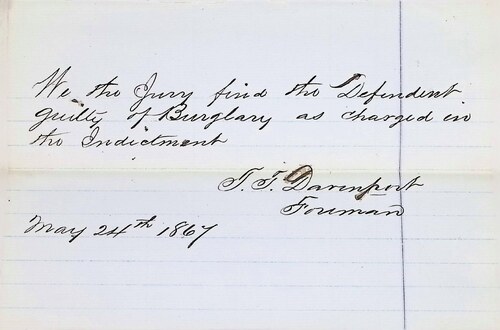 We the Jury find the Defendent
guilty of Burglary as charged in
the Indictment
T. T. Davenport
Foreman
May 24th 1867